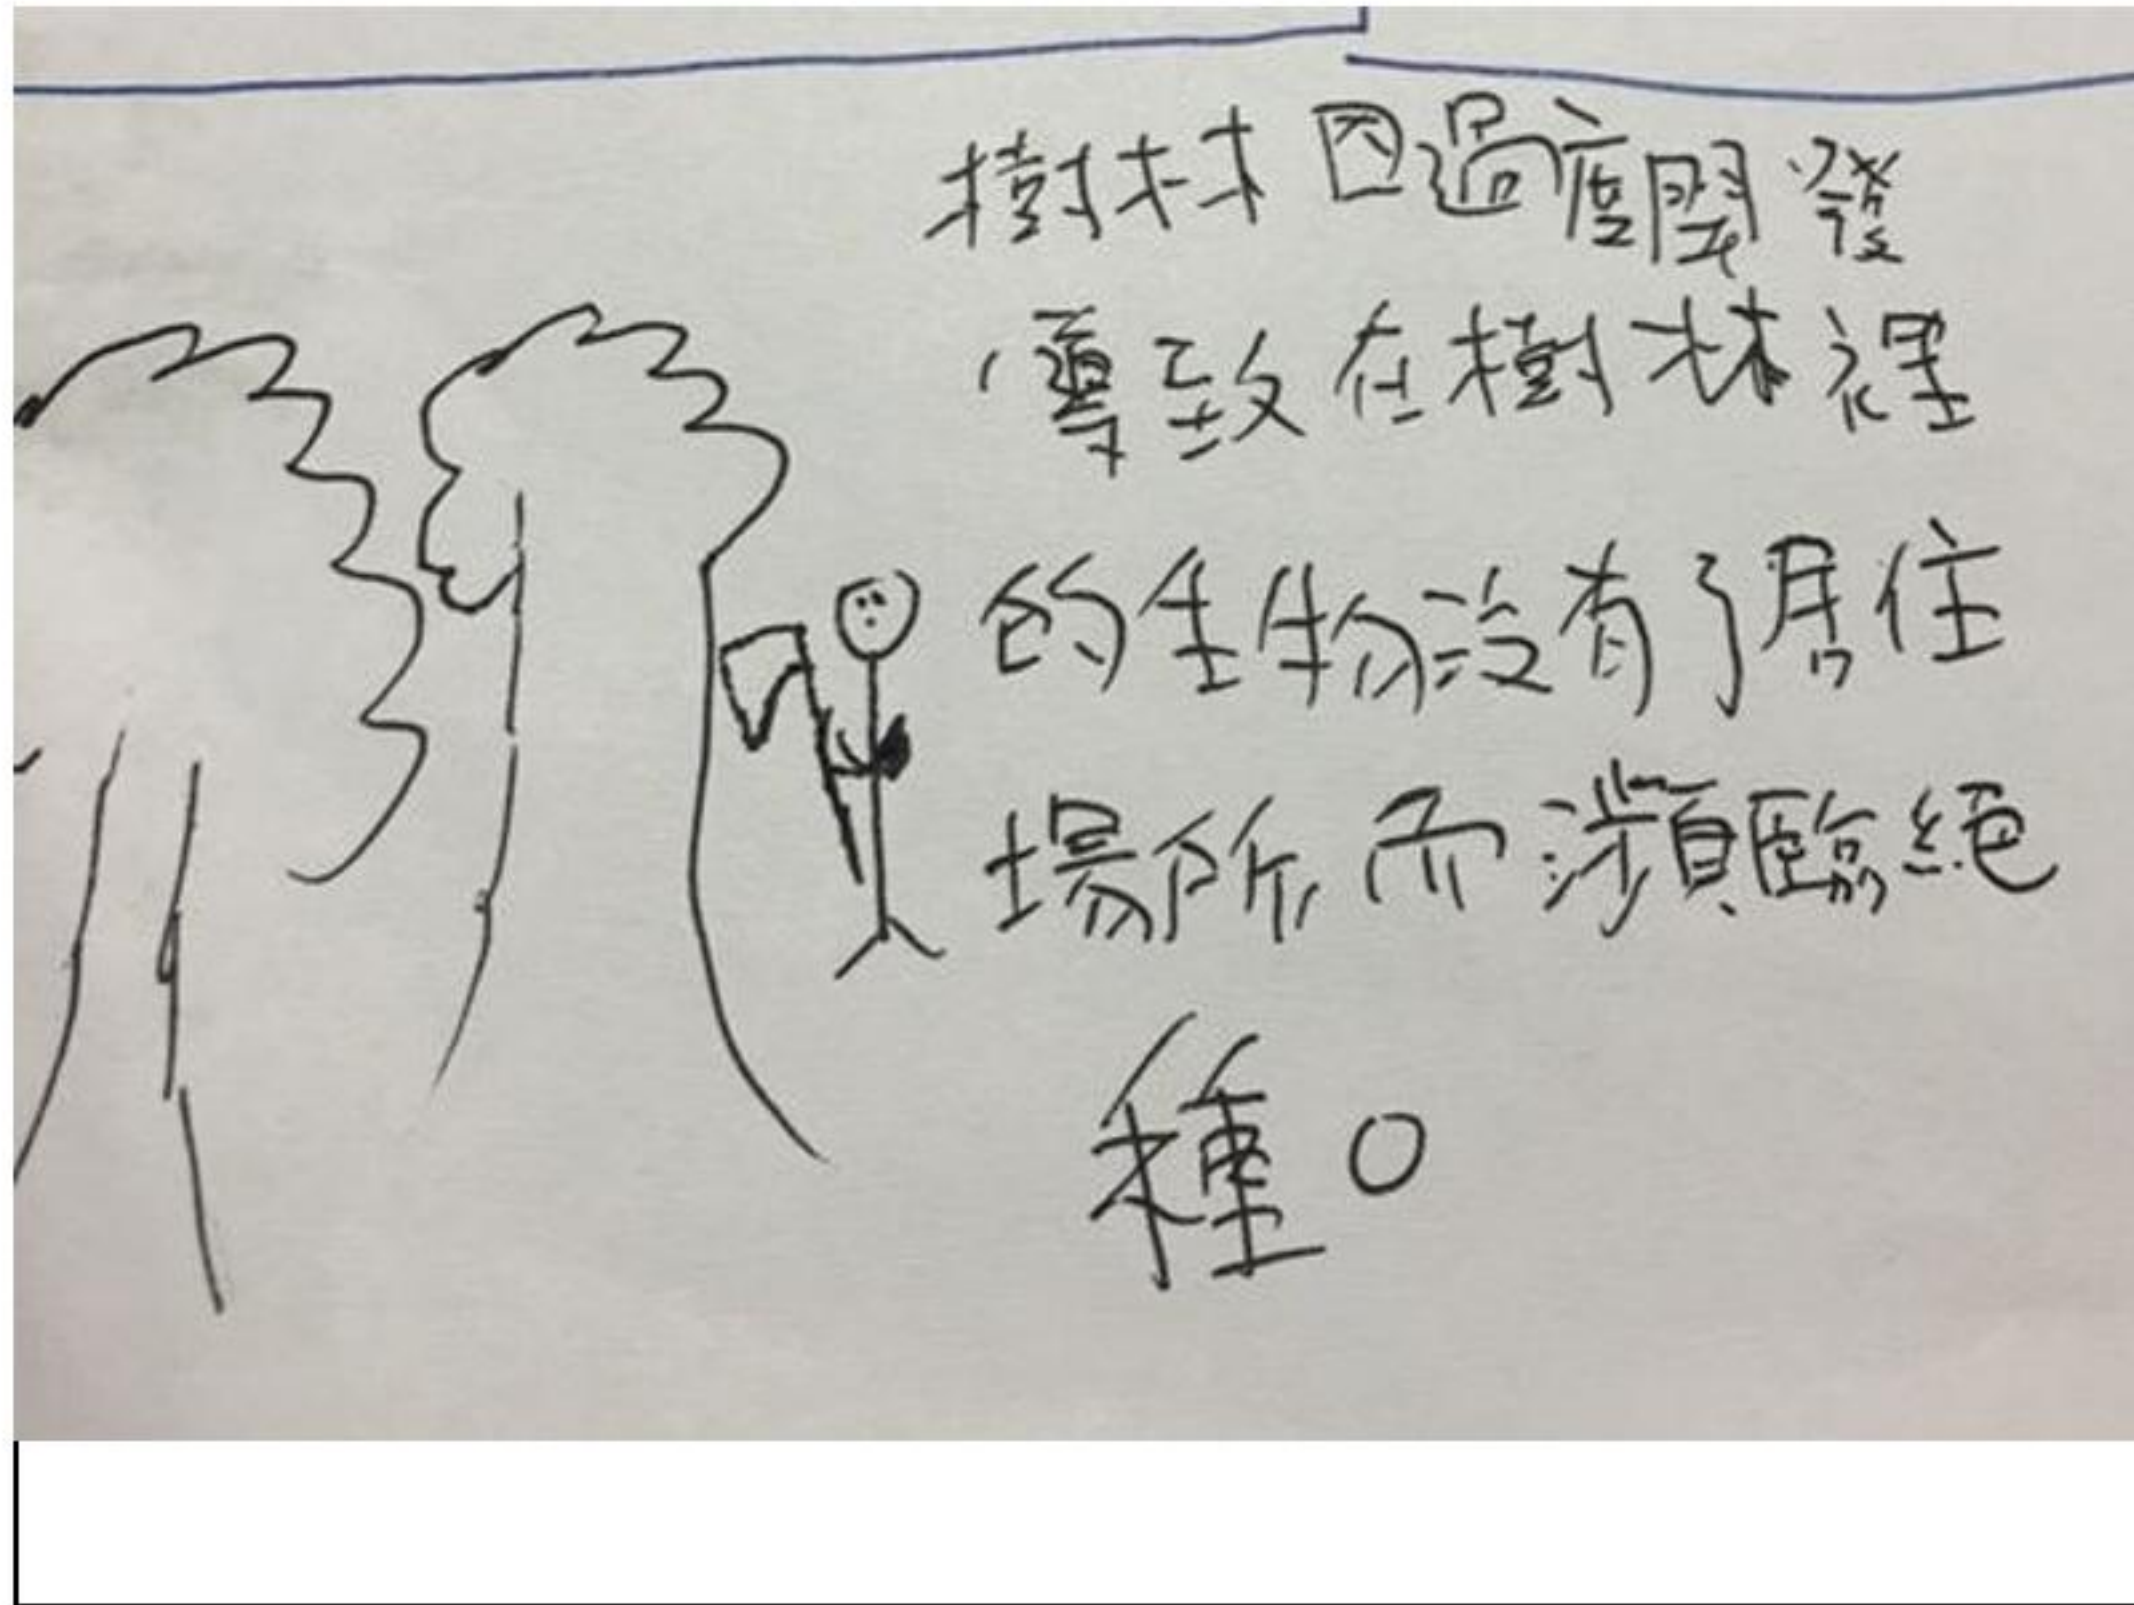 樹林因過度開發
導致在樹林裡
的生物沒有了居住
場所而瀕臨絕
種。